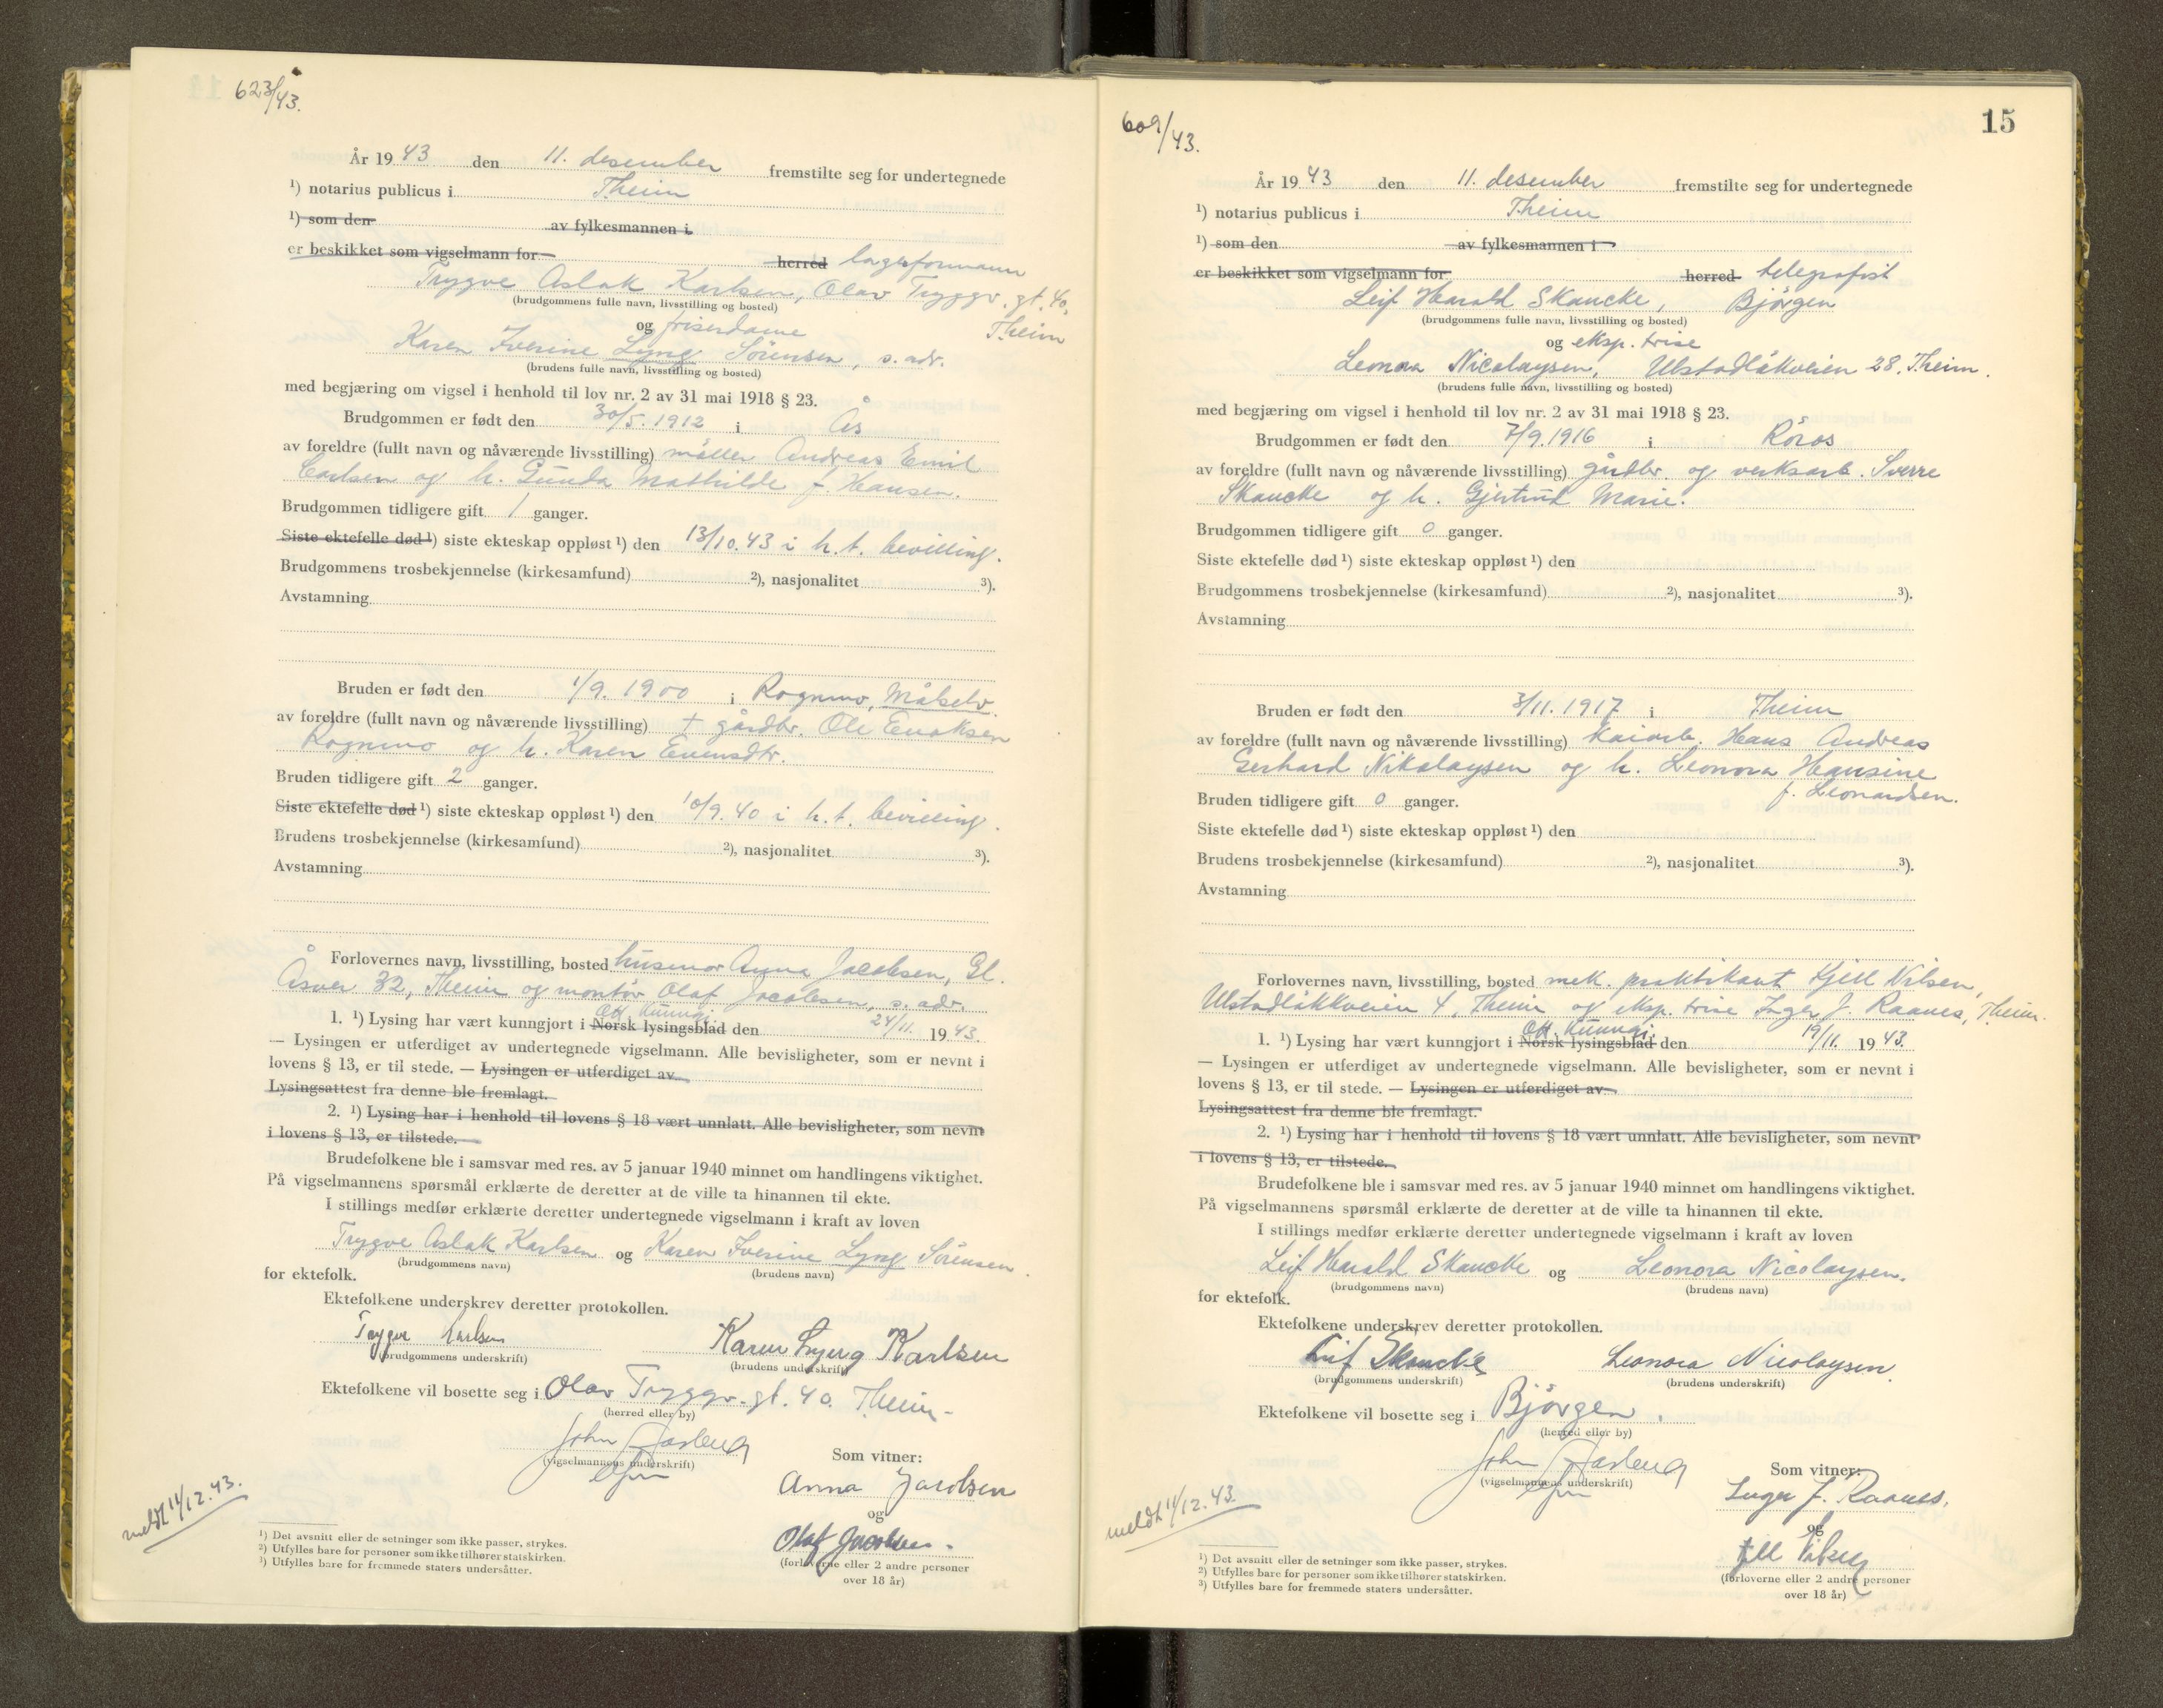 623/43.
År 1943 den 11. desember fremstilte seg for undertegnede
¹) notarius publicus i Theim
¹) som den av fylkesmannen i
er beskikket som vigselmann for herred lagerformann
Trygve Aslak Karlsen, Olav Tryggv. gt. 40,
(brudgommens fulle navn, livsstilling og bosted)
Theim
og friserdame
Karen Iverine Lyng Sörensen, s. adr.
(brudens fulle navn, livsstilling og bosted)
med begjæring om vigsel i henhold til lov nr. 2 av 31 mai 1918 § 23.
Brudgommen er født den 30/5. 1912 i Ås
av foreldre (fullt navn og nåværende livsstilling) möller Andreas Emil
Carlsen og h. Gunda Mathilde f. Hansen.
Brudgommen tidligere gift 1 ganger.
Siste ektefelle død ¹) siste ekteskap oppløst ¹) den 13/10. 43 i h. t. bevilling.
Brudgommens trosbekjennelse (kirkesamfund) ²), nasjonalitet ³).
Avstamning
Bruden er født den 1/9. 1900 i Rognmo, Målselv.
av foreldre (fullt navn og nåværende livsstilling) † gårdbr. Ole Enoksen
Rognmo og h. Karen Evensdtr.
Bruden tidligere gift 2 ganger.
Siste ektefelle død ¹) siste ekteskap oppløst ¹) den 10/9. 40 i h. t. bevilling.
Brudens trosbekjennelse (kirkesamfund) ²), nasjonalitet ³).
Avstamning
Forlovernes navn, livsstilling, bosted husmor Anna Jacobsen, Gl.
Åsvei 32, Theim og montör Olaf Jacobsen, s. adr.
Off. Kunngj.
1. ¹) Lysing har vært kunngjort i Norsk lysingsblad den 24/11. 1943.
— Lysingen er utferdiget av undertegnede vigselmann. Alle bevisligheter, som er nevnt i
lovens § 13, er til stede. — Lysingen er utferdiget av
Lysingsattest fra denne ble fremlagt.
2. ¹) Lysing har i henhold til lovens § 18 vært unnlatt. Alle bevisligheter, som nevnt
i lovens § 13, er tilstede.
Brudefolkene ble i samsvar med res. av 5 januar 1940 minnet om handlingens viktighet.
På vigselmannens spørsmål erklærte de deretter at de ville ta hinannen til ekte.
I stillings medfør erklærte deretter undertegnede vigselmann i kraft av loven
Trygve Aslak Karlsen og Karen Iverine Lyng Sörensen.
(brudgommens navn) (brudens navn)
for ektefolk.
Ektefolkene underskrev deretter protokollen.
Trygve Karlsen Karen Lyng Karlsen
(brudgommens underskrift) (brudens underskrift)
Ektefolkene vil bosette seg i Olav Tryggv. gt. 40. Theim
(herred eller by)
John
(vigselmannens underskrift)
Som vitner:
Anna Jacobsen
og
Olaf Jacobsen
(forloverne eller 2 andre personer
over 18 år)
meldt 11/12. 43.
¹) Det avsnitt eller de setninger som ikke passer, strykes.
²) Utfylles bare for personer som ikke tilhører statskirken.
³) Utfylles bare for fremmede staters undersåtter.
15
609/43.
År 1943 den 11. desember fremstilte seg for undertegnede
¹) notarius publicus i Theim
¹) som den av fylkesmannen i
er beskikket som vigselmann for herred telegrafist
Leif Harald Skancke, Björgen
(brudgommens fulle navn, livsstilling og bosted)
og eksp. trise
Leonora Nicolaysen, Ulstadlökveien 28. Theim.
(brudens fulle navn, livsstilling og bosted)
med begjæring om vigsel i henhold til lov nr. 2 av 31 mai 1918 § 23.
Brudgommen er født den 7/9. 1916 i Röros
av foreldre (fullt navn og nåværende livsstilling) gårdbr. og verksarb. Sverre
Skancke og h. Gjertrud Marie.
Brudgommen tidligere gift 0 ganger.
Siste ektefelle død ¹) siste ekteskap oppløst ¹) den
Brudgommens trosbekjennelse (kirkesamfund) ²), nasjonalitet ³).
Avstamning
Bruden er født den 3/11. 1917 i Theim
av foreldre (fullt navn og nåværende livsstilling) kaiarb. Hans Andreas
Gerhard Nikolaysen og h. Leonora Hansine
f. Leonardsen.
Bruden tidligere gift 0 ganger.
Siste ektefelle død ¹) siste ekteskap oppløst ¹) den
Brudens trosbekjennelse (kirkesamfund) ²), nasjonalitet ³).
Avstamning
Forlovernes navn, livsstilling, bosted mek. praktikant Kjell Nilsen,
Ulstadlökkveien 4, Theim og eksp. trise Inger J. Raanes, Theim.
Off. Kunngj.
1. ¹) Lysing har vært kunngjort i Norsk lysingsblad den 19/11. 1943.
— Lysingen er utferdiget av undertegnede vigselmann. Alle bevisligheter, som er nevnt i
lovens § 13, er til stede. — Lysingen er utferdiget av
Lysingsattest fra denne ble fremlagt.
2. ¹) Lysing har i henhold til lovens § 18 vært unnlatt. Alle bevisligheter, som nevnt
i lovens § 13, er tilstede.
Brudefolkene ble i samsvar med res. av 5 januar 1940 minnet om handlingens viktighet.
På vigselmannens spørsmål erklærte de deretter at de ville ta hinannen til ekte.
I stillings medfør erklærte deretter undertegnede vigselmann i kraft av loven
Leif Harald Skancke og Leonora Nicolaysen.
(brudgommens navn) (brudens navn)
for ektefolk.
Ektefolkene underskrev deretter protokollen.
Leif Skancke Leonora Nicolaysen.
(brudgommens underskrift) (brudens underskrift)
Ektefolkene vil bosette seg i Björgen.
(herred eller by)
John
(vigselmannens underskrift)
Som vitner:
Inger J. Raanes.
og
Kjell Nilsen
(forloverne eller 2 andre personer
over 18 år)
meldt 11/12. 43.
¹) Det avsnitt eller de setninger som ikke passer, strykes.
²) Utfylles bare for personer som ikke tilhører statskirken.
³) Utfylles bare for fremmede staters undersåtter.